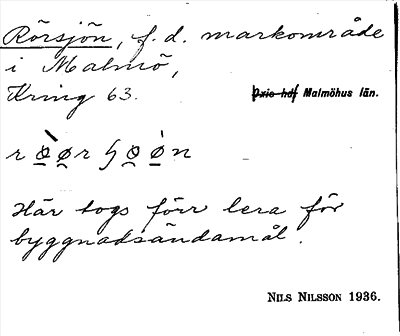 Rörsjön, f. d. markområde
i Malmö,
Kring 63. Oxie hd Malmöhus län.
Här togs förr lera för
byggnadsändamål.
NILS NILSSON 1936.